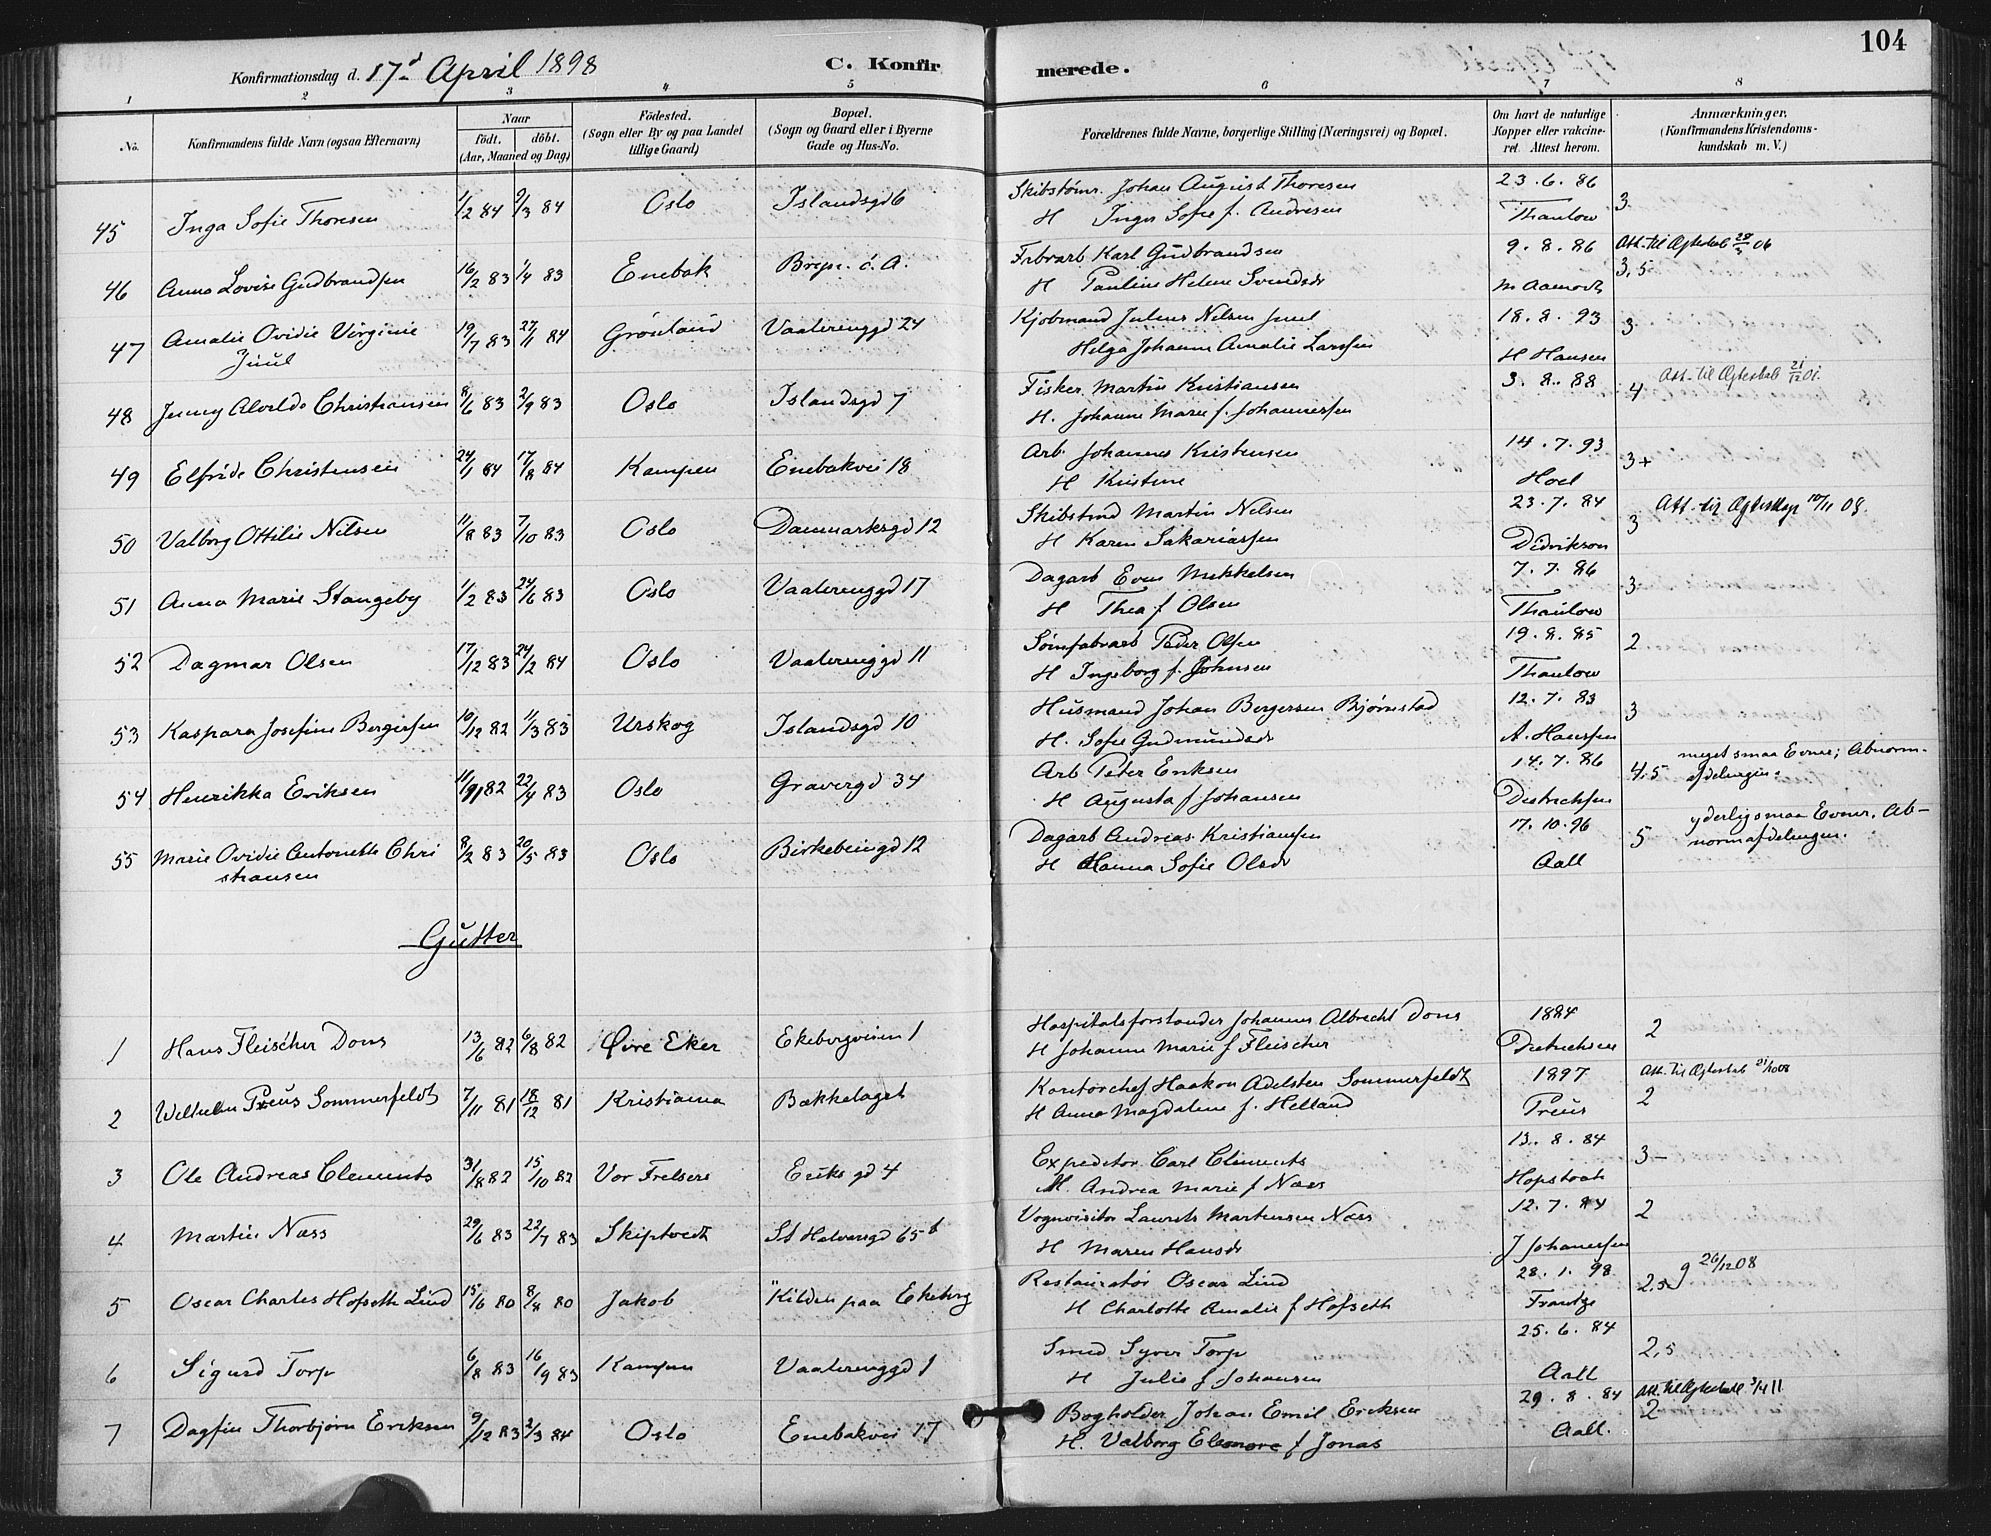 104
Konfirmationsdag d. 17d April 1898 C. Konfirmerede.
1 2 3 4 5 6 7 8
No. Konfirmandens fulde Navn (ogsaa Efternavn) Naar født. døbt. (Aar, Maaned og Dag) Fødested. (Sogn eller By og paa Landet tillige Gaard) Bopæl. (Sogn og Gaard eller i Byerne Gade og Hus-No. Forældrenes fulde Navne, borgerlige Stilling (Næringsvei) og Bopæl. Om havt de naturlige Kopper eller vakcineret. Attest herom. Anmærkninger. (Konfirmandens Kristendomskundskab m. V.)
45 Inga Sofie Thoresen 1/2 84 2/3 84 Oslo Islandsgd 6 Skibstømr. Johan August Thoresen 23.6.86 3
H Inger Sofie f. Andresen Thaulow
46 Anna Lovise Gudbrandsen 16/2 83 1/4 83 Enebak Karl Gudbrandsen 9.8.86 Att. til Ægteskab 06
H Pauline Helene Svendsdr M Aamodt 3,5
47 Amalie Ovidie Virginie 19/7 83 27/1 84 Grønland Vaalerenggd 24 Kjøbmand Julius Nilsen Juul 18.8.93 3
Juul Helga Johanne Amalie Larssen H Hansen
48 Jenny Alvilde Christiansen 8/6 83 2/9 83 Oslo Islandsgd 7 Fisker Martin Kristiansen 3.8.88 4 Att. til Ægteskab 21/12 01.
H. Johanne Marie f. Johannessen
49 Elfride Christensen 24/1 84 17/8 84 Kampen Enebakvei 18 Arb Johannes Kristensen 14.7.93 3+
H Kristine Hoel
50 Valborg Ottilie Nilsen 11/8 83 7/10 83 Oslo Danmarksgd 12 Martin Nilsen 23.7.84 3 Att. til Ægteskap 10/11 08.
H Karen Sakariassen Didrikson
51 Anna Marie Stangeby 1/2 83 24/6 83 Oslo Vaalerenggd 17 Dagarb Even Mikkelsen 7.7.86 3
H Thea f Olsen Thaulow
52 Dagmar Olsen 17/12 83 24/2 84 Oslo Vaalerenggd 11 Peder Olsen 19.8.85 2
H Ingeborg f. Johnsen Thaulow
53 Kaspara Josefine Bergersen 10/12 82 11/3 83 Urskog Islandsgd 10 Husmand Johan Bergersen Bjørnstad 12.7.83 3
H. Sofie Gudmundsdr A. Hanssen
54 Henrikka Eriksen 11/9 82 22/4 83 Oslo Gravergd 34 Arb Peter Eriksen 14.7.86 4,5 meget smaa Evner; Abnormafdelingen.
H Augusta f Johansen Dietrichsen
55 Marie Ovidie Antonette Chri 8/2 83 20/5 83 Oslo Birkebeingd 12 Dagarb Andreas Kristiansen 17.10.96 5 yderlig smaa Evner. Ab-
stiansen H Hanna Sofie Olsdr Aall normafdelingen.
Gutter
1 Hans Fleischer Dons 13/6 82 6/8 82 Øvre Eker Ekebergveien 1 Hospitalsforstander Johannes Albrecht Dons 1884 2
H Johanne Marie f Fleischer Dietrichsen
2 Wilhelm Preus Sommerfeldt 7/11 81 18/12 81 Kristiania Bækkelaget Kontorchef Haakon Adelsten Sommerfeldt 1897 Att. til Ægteskab
H Anna Magdalene f. Helland Preus 2
3 Ole Andreas Clements 31/8 82 15/10 82 Vor Frelsers Eriksgd 4 Expeditør Carl Clements 13.8.84 3-
M. Andrea Marie f Næss Hopstock
4 Martin Næss 29/6 83 22/7 83 Skiptvedt St Halvarsgd 65 b Vognvisitør Laurits Martinsen Næss 12.7.84 2
H Maren Hansdr J Johanessen
5 Oscar Charles Hofseth Lind 15/6 80 8/8 80 Jakob "Kilden paa Ekeberg Restauratør Oscar Lind 28.1.98 2,5 g 26/12 08
H Charlotte Amalie f Hofseth Frantze
6 Sigurd Torp 6/8 83 16/9 83 Kampen Vaalerenggd 1 Smed Syver Torp 25.6.84 2,5
H Julie f Johansen Aall
7 Dagfin Thorbjørn Eriksen 9/12 83 2/3 84 Oslo Enebakvei 17 Bogholder Johan Emil Eriksen 29.8.84 Att. til Ægteskab 3/4 11
H. Valborg Elenore f Jonas Aall. 2